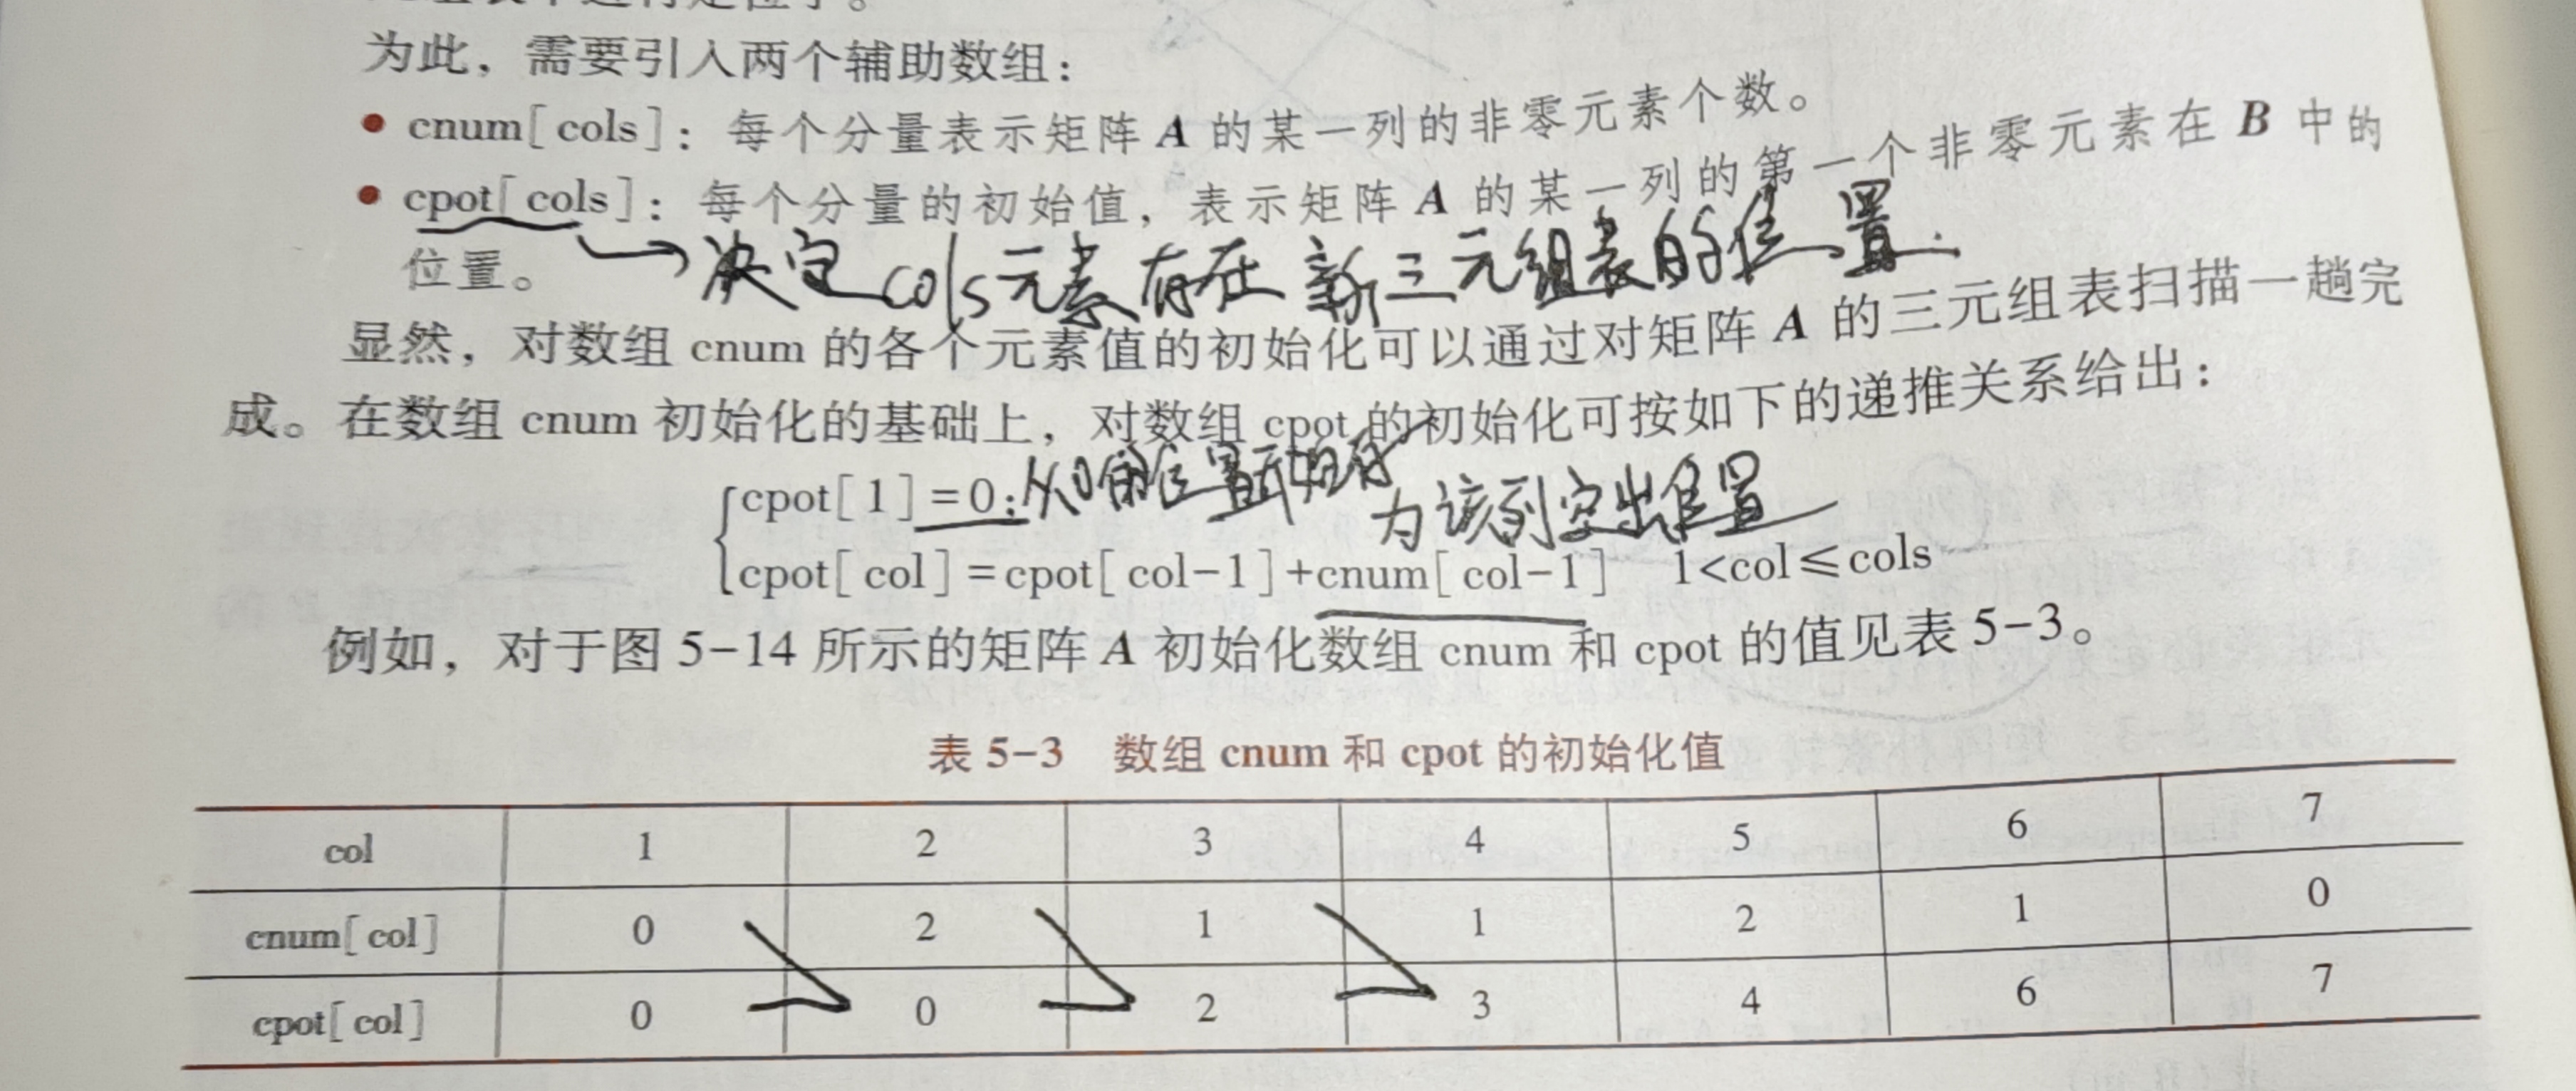 为此，需要引入两个辅助数组：
• cnum[cols]：每个分量表示矩阵 A 的某一列的非零元素个数。
• cpot[cols]：每个分量的初始值，表示矩阵 A 的某一列的第一个非零元素在 B 中的
位置。
决定cols元素存在新三元组表的位置.
显然，对数组 cnum 的各个元素值的初始化可以通过对矩阵 A 的三元组表扫描一趟完
成。在数组 cnum 初始化的基础上，对数组 cpot 的初始化可按如下的递推关系给出：
cpot[1]=0;
从0的位置开始存
为该列空出位置
cpot[col]=cpot[col-1]+cnum[col-1] 1<col≤cols
例如，对于图 5-14 所示的矩阵 A 初始化数组 cnum 和 cpot 的值见表 5-3。
表 5-3 数组 cnum 和 cpot 的初始化值
col 1 2 3 4 5 6 7
cnum[col] 0 2 1 1 2 1 0
cpot[col] 0 0 2 3 4 6 7